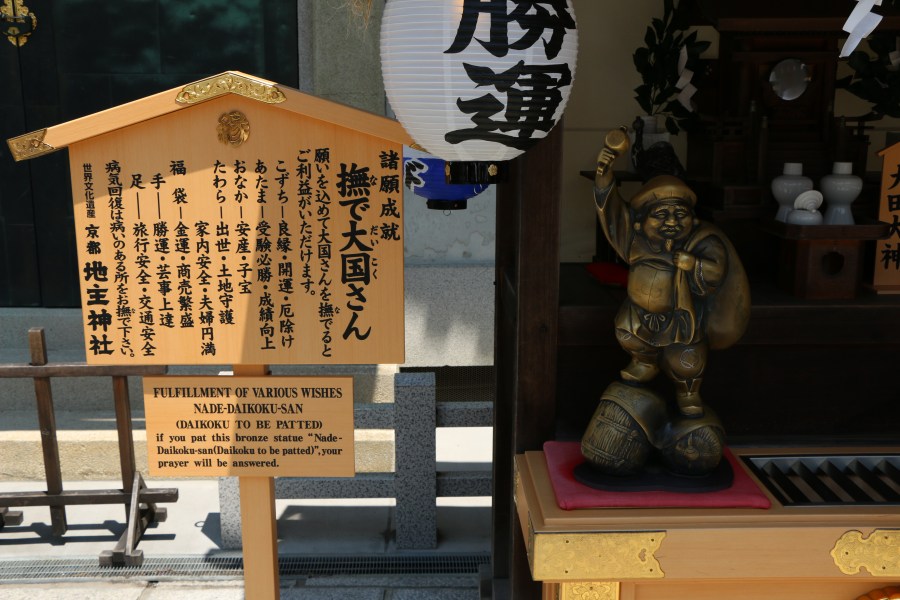 諸願成就
撫で大国さん
な
だいこく
願いを込めて大国さんを撫でると
な
ご利益がいただけます。
こずち―良縁・開運・厄除け
あたま―受験必勝・成績向上
おなか―安産・子宝
たわら―出世・土地守護
家内安全・夫婦円満
福袋―金運・商売繁盛
手―勝運・芸事上達
足―旅行安全・交通安全
病気回復は病いのある所をお撫で下さい。
な
世界文化遺産 京都 地主神社
FULFILLMENT OF VARIOUS WISHES
NADE-DAIKOKU-SAN
(DAIKOKU TO BE PATTED)
if you pat this bronze statue "Nade-
Daikoku-san(Daikoku to be patted)", your
prayer will be answered.
勝運